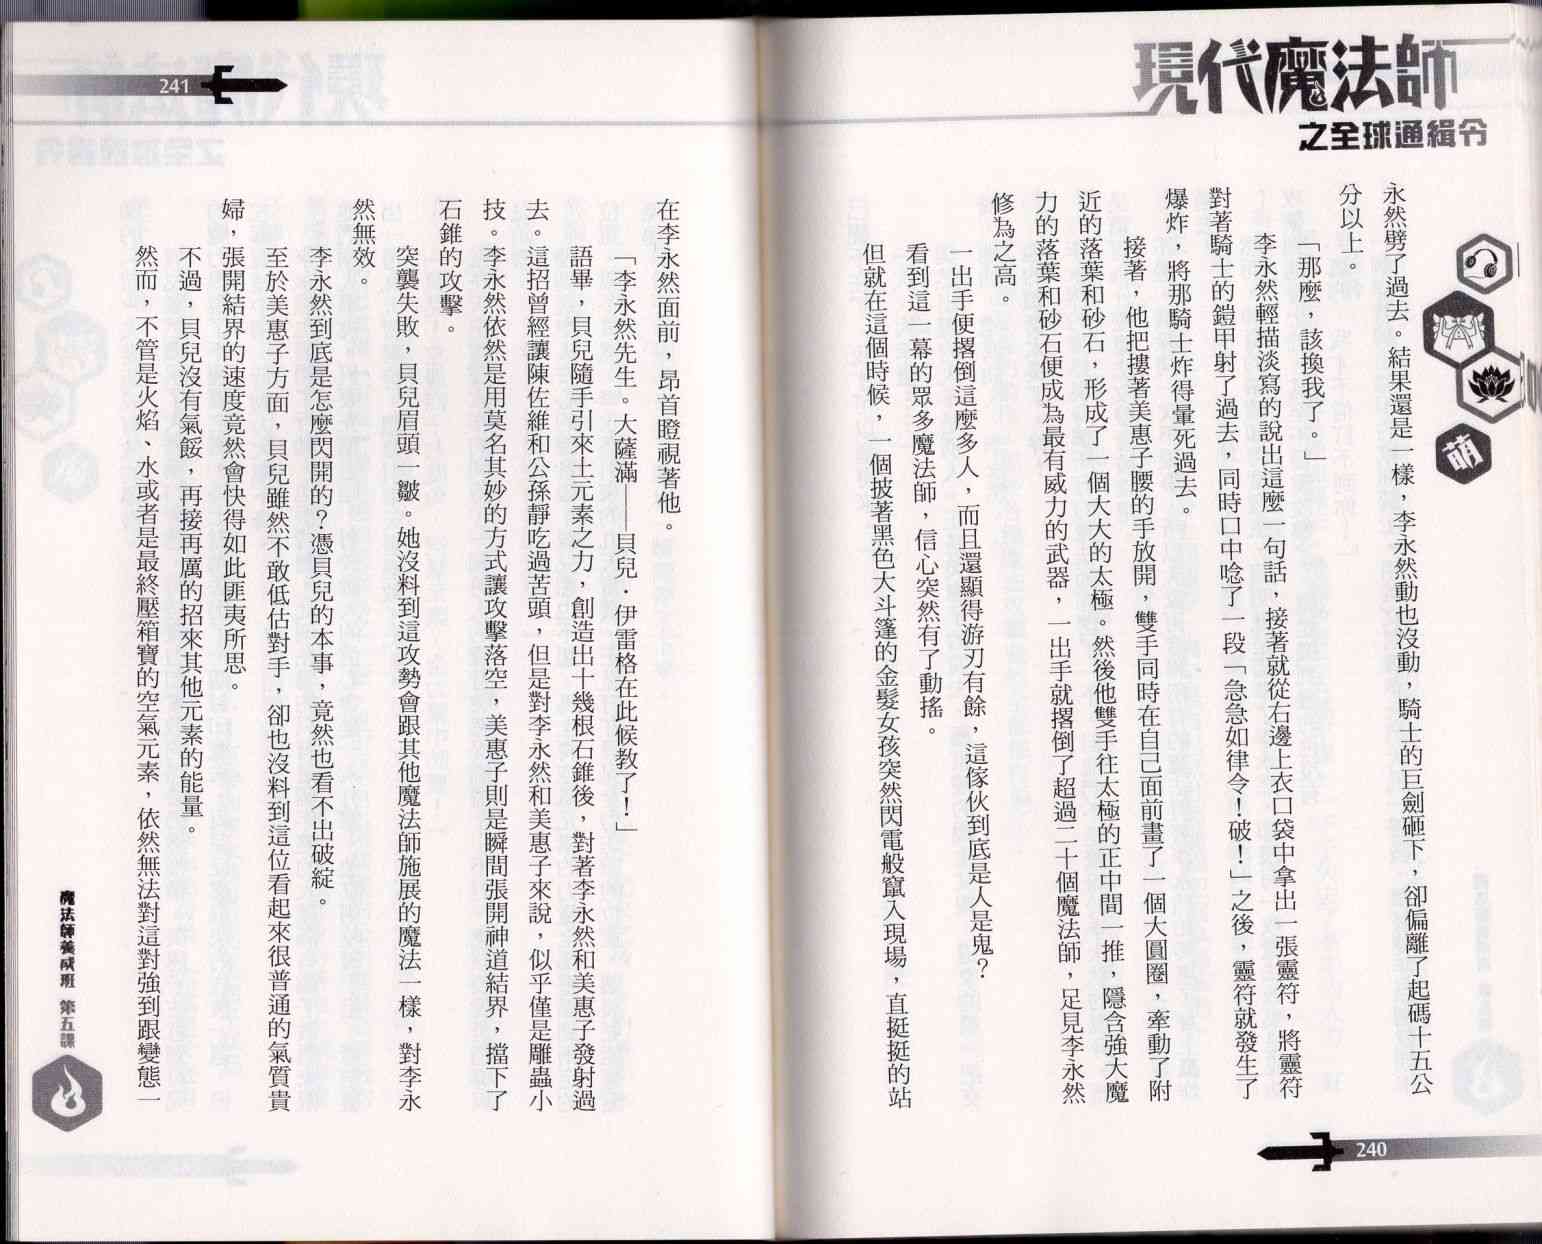 現代魔法師
之全球通緝令
萌
永然劈了過去。結果還是一樣，李永然動也沒動，騎士的巨劍砸下，卻偏離了起碼十五公
分以上。
「那麼，該換我了。」
李永然輕描淡寫的說出這麼一句話，接著就從右邊上衣口袋中拿出一張靈符，將靈符
對著騎士的鎧甲射了過去，同時口中唸了一段「急急如律令！破！」之後，靈符就發生了
爆炸，將那騎士炸得暈死過去。
接著，他把摟著美惠子腰的手放開，雙手同時在自己面前畫了一個大圓圈，牽動了附
近的落葉和砂石，形成了一個大大的太極。然後他雙手往太極的正中間一推，隱含強大魔
力的落葉和砂石便成為最有威力的武器，一出手就撂倒了超過二十個魔法師，足見李永然
修為之高。
一出手便撂倒這麼多人，而且還顯得游刃有餘，這傢伙到底是人是鬼？
看到這一幕的眾多魔法師，信心突然有了動搖。
但就在這個時候，一個披著黑色大斗篷的金髮女孩突然閃電般竄入現場，直挺挺的站
240
241
在李永然面前，昂首瞪視著他。
「李永然先生。大薩滿——貝兒．伊雷格在此候教了！」
語畢，貝兒隨手引來土元素之力，創造出十幾根石錐後，對著李永然和美惠子發射過
去。這招曾經讓陳佐維和公孫靜吃過苦頭，但是對李永然和美惠子來說，似乎僅是雕蟲小
技。李永然依然是用莫名其妙的方式讓攻擊落空，美惠子則是瞬間張開神道結界，擋下了
石錐的攻擊。
突襲失敗，貝兒眉頭一皺。她沒料到這攻勢會跟其他魔法師施展的魔法一樣，對李永
然無效。
李永然到底是怎麼閃開的？憑貝兒的本事，竟然也看不出破綻。
至於美惠子方面，貝兒雖然不敢低估對手，卻也沒料到這位看起來很普通的氣質貴
婦，張開結界的速度竟然會快得如此匪夷所思。
不過，貝兒沒有氣餒，再接再厲的招來其他元素的能量。
然而，不管是火焰、水或者是最終壓箱寶的空氣元素，依然無法對這對強到跟變態一
魔法師養成班 第五課